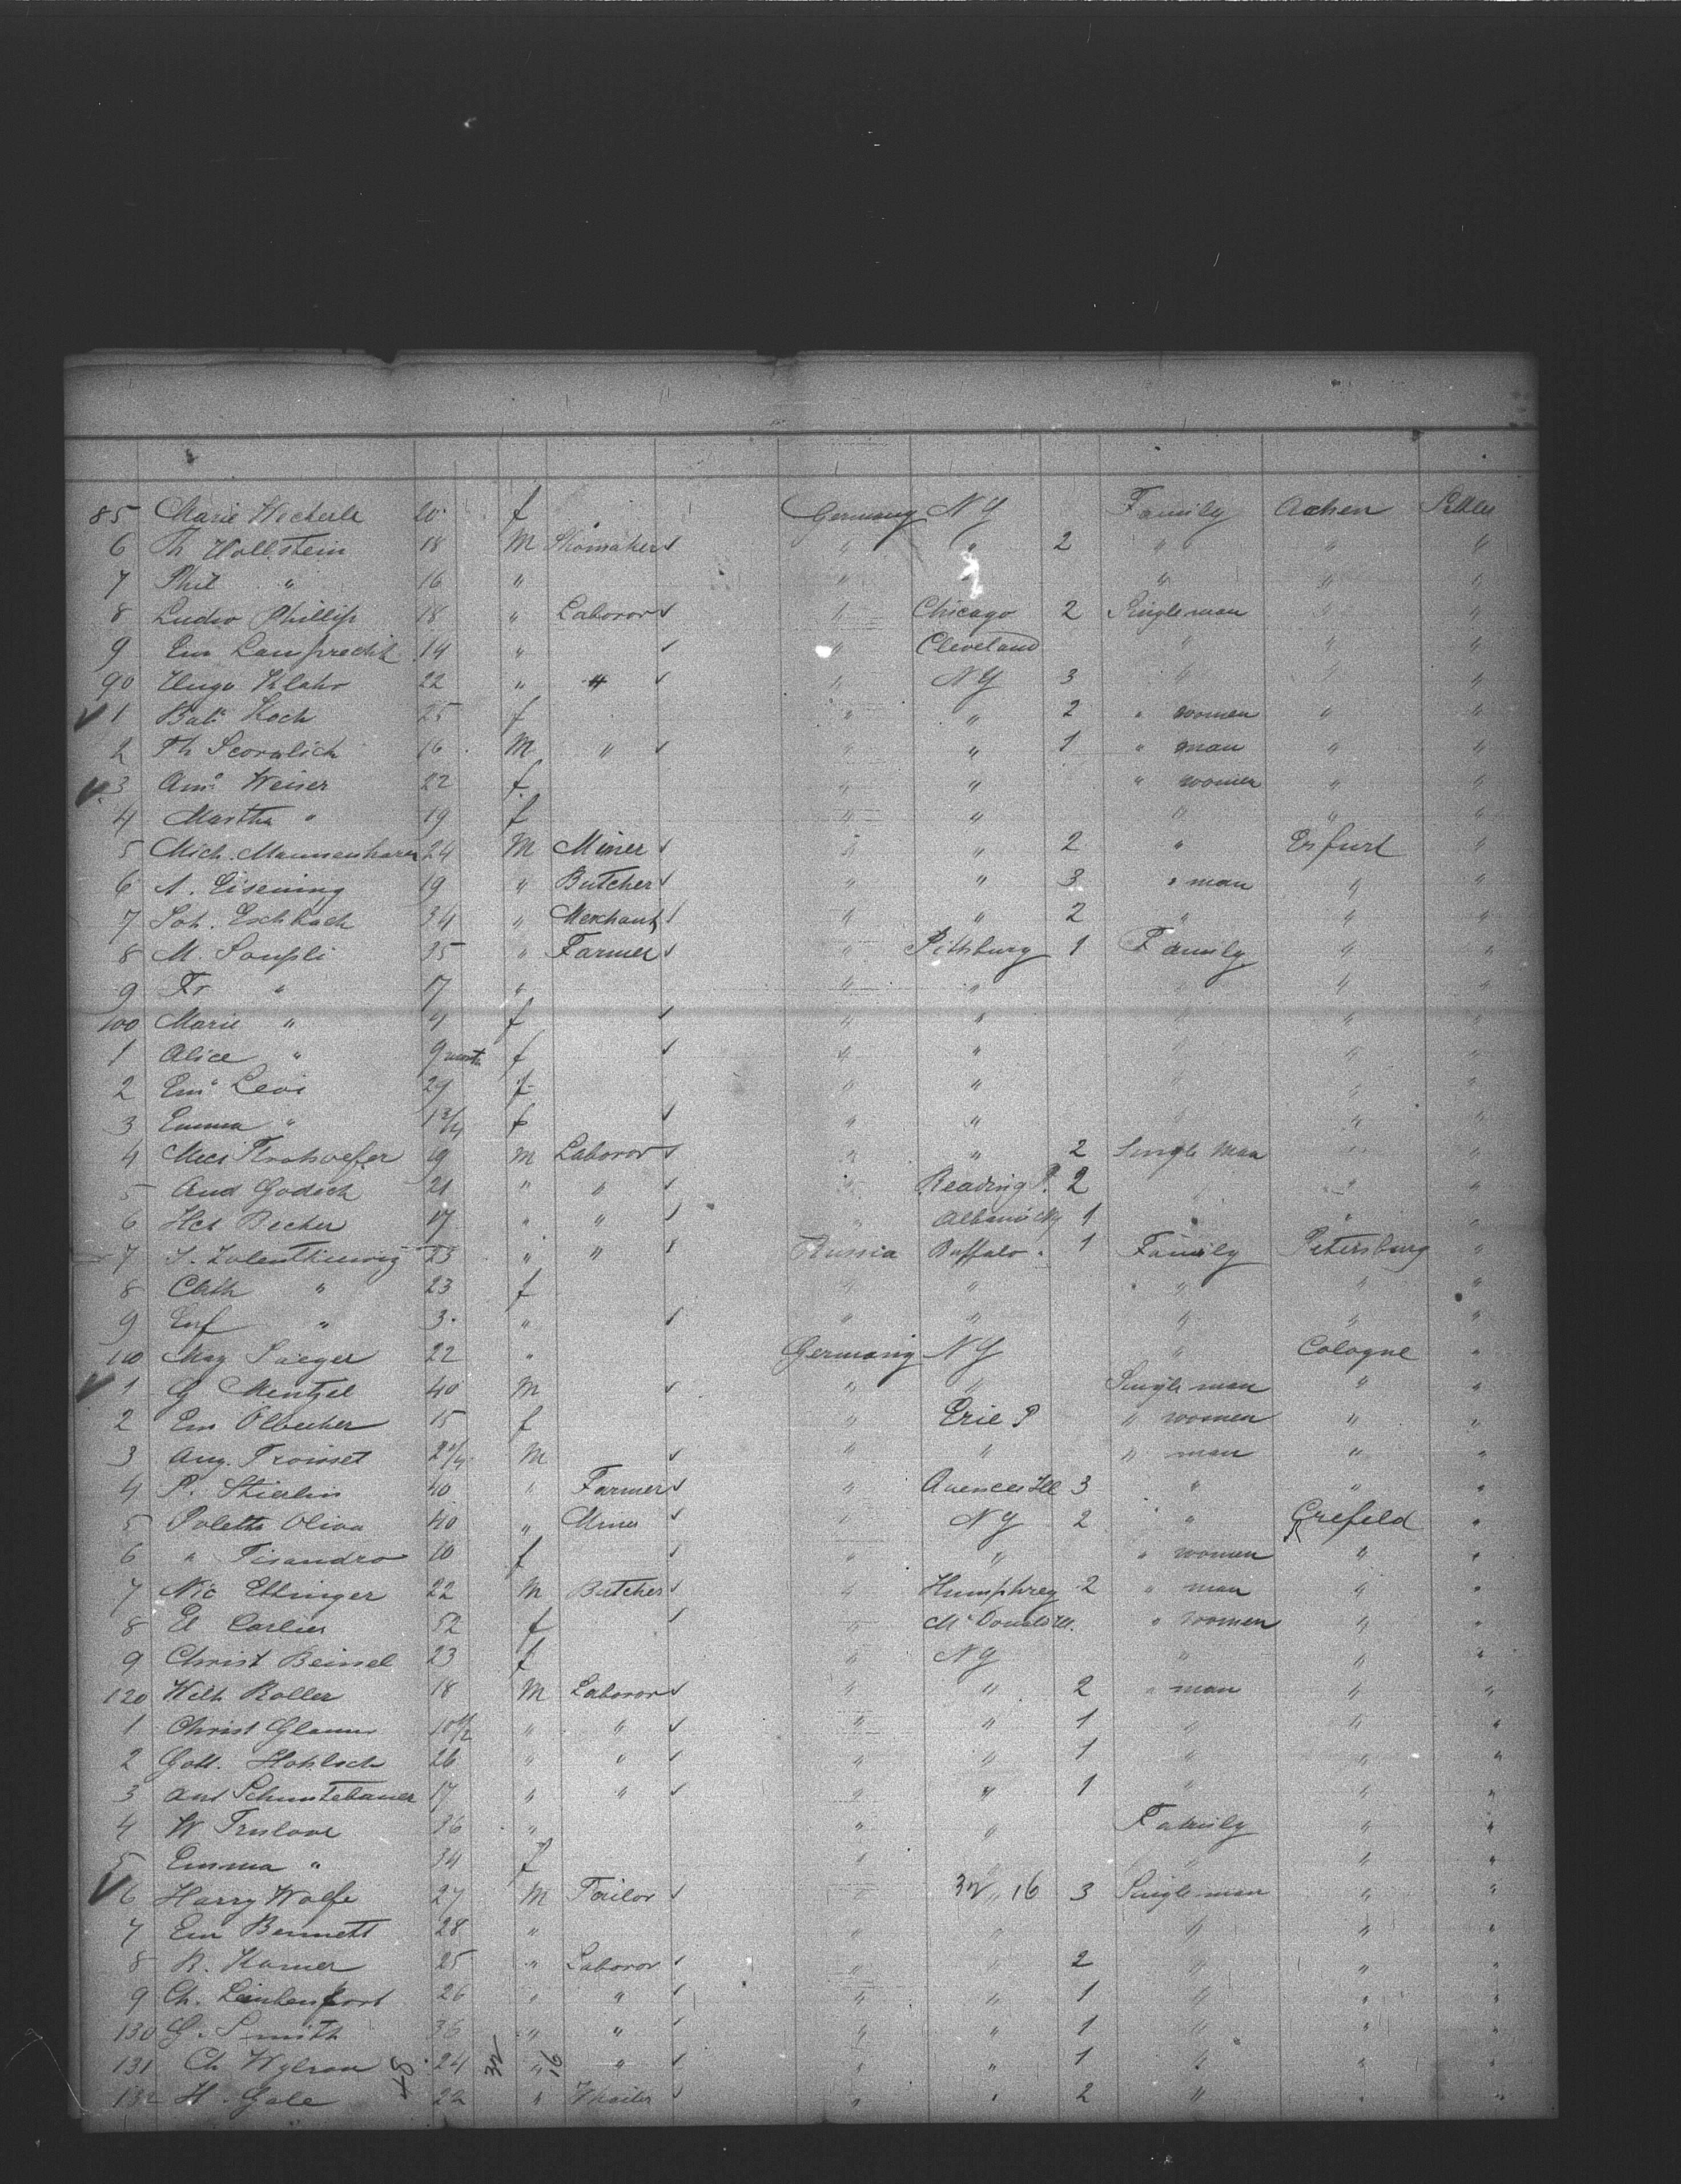 85 Marie Weckerle 20 f Germany NY Family Achen Settler
6 Th Hollstein 18 M Shomaker ✓ " " 2 " " "
7 Phil " 16 " " " " "
8 Ludw Phillip 18 " Laboror ✓ " Chicago 2 Single man " "
9 Em Lamprecht 14 " ✓ " Cleveland " " "
90 Hugo Klahr 22 " " ✓ " NY 3 " " "
✓ 1 Bab. Koch 25 f " " 2 " women " "
2 Th 16 M " ✓ " " 1 " man " "
✓ 3 Ama Weiser 22 f " " " women " "
4 Martha " 19 f " " " " "
5 Mich. 24 M Miner ✓ " " 2 " Erfurt "
6 A. Eisening 19 " Butcher ✓ " " 3 " man " "
7 Joh. Eschbach 34 " Merchant ✓ " " 2 " " "
8 M. 35 " Farmer ✓ " Pittsburg 1 Family " "
9 Fr " 17 " " " " " "
100 Marie " 4 f ✓ " " " " "
1 Alice " 9 month f ✓ " " " " "
2 Em. Levi 29 f " " " " "
3 Emma " 1 3/4 f ✓ " " " " "
4 19 M Laboror ✓ " " 2 Single Man " "
5 And Godich 21 " " ✓ " Reading P. 2 " " "
6 Hch Becher 17 " " ✓ " Albani NY 1 " " "
7 J. 23 " " ✓ Russia Buffalo 1 Family Petersburg "
8 Cath " 23 f " " " " "
9 " 3 " ✓ " " " " "
110 Mag Saeger 22 " Germany NY " Cologne "
✓ 1 G Mentzel 40 M ✓ " " Single man " "
2 Em Olbecher 15 f " Erie P " women " "
3 Aug. Troisset 2 1/4 M ✓ " " " man " "
4 P. Stierlin 40 " Farmer ✓ " Ill 3 " " "
5 Poletti Oliva 40 " ✓ " NY 2 " Crefeld "
6 " Tisandro 10 f ✓ " " " women " "
7 Nic Ettinger 22 M Butcher ✓ " Humphrey 2 " man " "
8 El Carlier 52 f ✓ " McDonald " women " "
9 Christ Beissel 23 f " NY " " "
120 Wilh Roller 18 M Laboror ✓ " " 2 " man " "
1 Christ " " ✓ " " 1 " " "
2 Gott. Hohloch 26 " " ✓ " " 1 " " "
3 Ant 17 " " ✓ " " 1 " " "
4 W Trulove 36 " " " Family " "
5 Emma " 34 f " " " " "
✓ 6 Harry Wolfe 27 M Tailor ✓ " 32 " 16 3 Single man " "
7 Em Bennett 28 " " " " " "
8 R. Hamer 25 " Laboror ✓ " " 2 " " "
9 Ch. 26 " " ✓ " " 1 " " "
130 G. Smith 36 " " ✓ " " 1 " " "
131 Ch Wylson 48 24 32 " 16 " ✓ " " 1 " " "
132 H. Gale 22 " ✓ " " 2 " " "